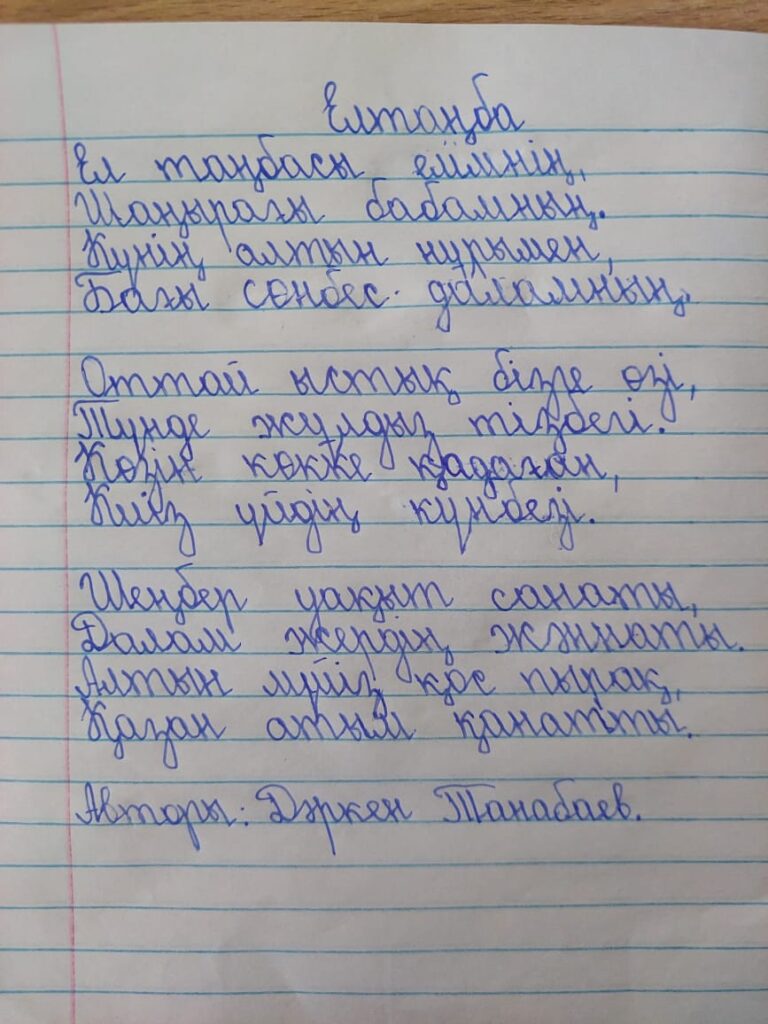 Елтаңба
Ел таңбасы елімнің,
Шаңырағы бабамның.
Күнің алтын нұрымен,
Бағы сөнбес даламның.
Оттай ыстық бізге өзі,
Түнде жұлдыз тізбегі.
Көзін көкке қадаған,
Киіз үйдің күнбезі.
Шеңбер уақыт санаты,
Далам жердің жәннаты.
Алтын мүйіз қос пырақ,
Қазан атым қанатты.
Авторы: Дәркен Танабаев.